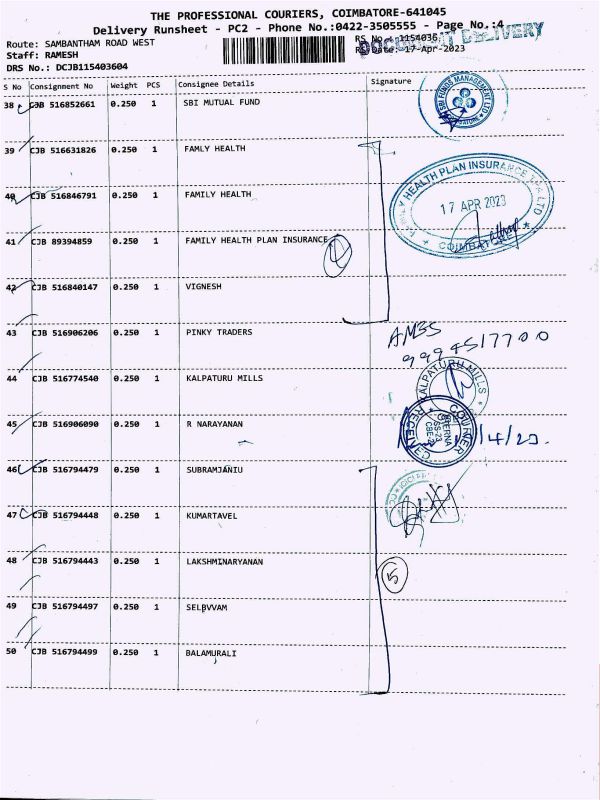 THE PROFESSIONAL COURIERS, COIMBATORE-641045
Delivery Runsheet - PC2 - Phone No.:0422-3505555 - Page No.:4
DOCUMENT DELIVERY
Route: SAMBANTHAM ROAD WEST
RS No.: 1154036
Staff: RAMESH
RS Date: 17-Apr-2023
DRS No.: DCJB115403604
S No Consignment No Weight PCS Consignee Details Signature
38 CJB 516852661 0.250 1 SBI MUTUAL FUND
SBI FUNDS MANAGEMENT LTD
39 CJB 516631826 0.250 1 FAMLY HEALTH
FAMILY HEALTH PLAN INSURANCE TPA LTD
17 APR 2023
COIMBATORE
40 CJB 516846791 0.250 1 FAMILY HEALTH
41 CJB 89394859 0.250 1 FAMILY HEALTH PLAN INSURANCE
4
42 CJB 516840147 0.250 1 VIGNESH
43 CJB 516906206 0.250 1 PINKY TRADERS
9994517700
44 CJB 516774540 0.250 1 KALPATURU MILLS
KALPATURU MILLS
45 CJB 516906090 0.250 1 R NARAYANAN
COURIER RECEIVED
46 CJB 516794479 0.250 1 SUBRAMJANIU
47 CJB 516794448 0.250 1 KUMARTAVEL
48 CJB 516794443 0.250 1 LAKSHMINARYANAN
5
49 CJB 516794497 0.250 1 SELBVVAM
50 CJB 516794499 0.250 1 BALAMURALI